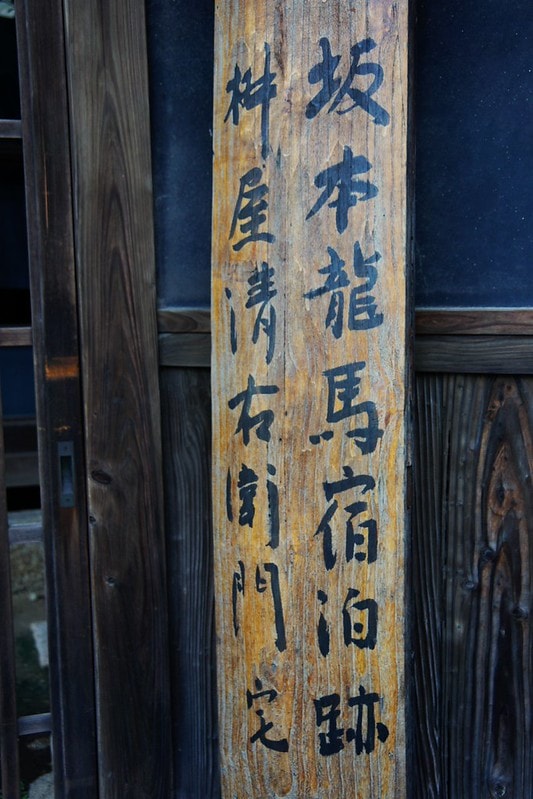 坂本龍馬宿泊跡
桝屋清右衛門宅